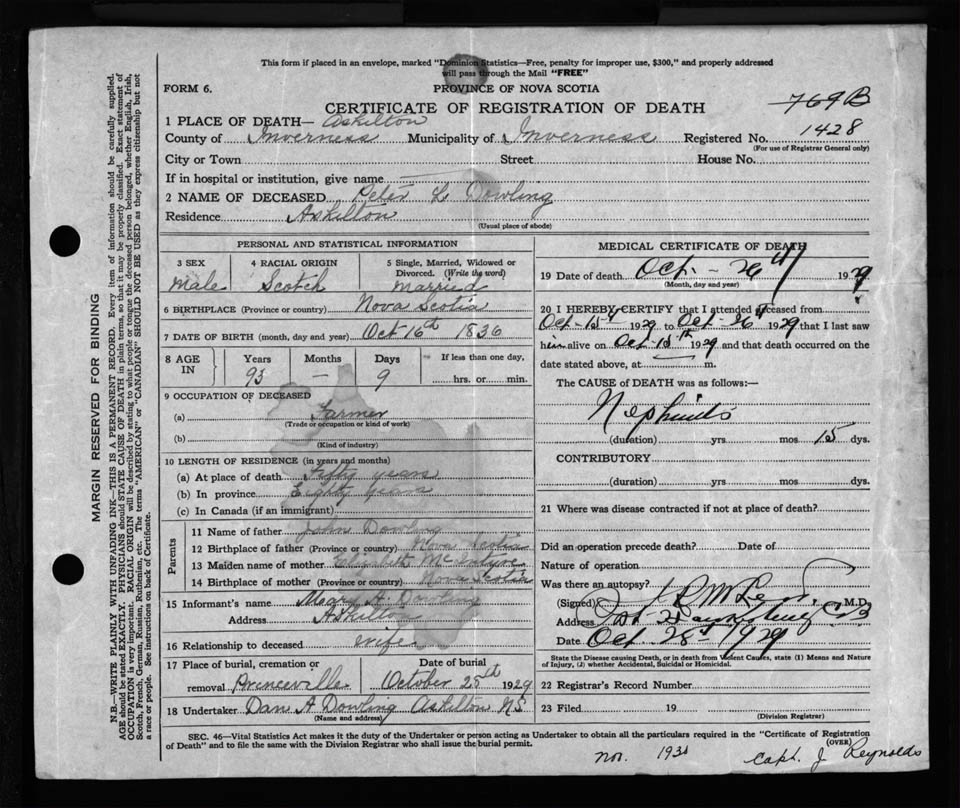 This form if placed in an envelope, marked "Dominion Statistics—Free, penalty for improper use, $300," and properly addressed
will pass through the Mail "FREE"
FORM 6.
PROVINCE OF NOVA SCOTIA
CERTIFICATE OF REGISTRATION OF DEATH
769B
1 PLACE OF DEATH— Askilton
County of Inverness Municipality of Inverness Registered No. 1428
(For use of Registrar General only)
City or Town Street House No.
If in hospital or institution, give name
2 NAME OF DECEASED Peter L Dowling
Residence Askilton
(Usual place of abode)
PERSONAL AND STATISTICAL INFORMATION
3 SEX 4 RACIAL ORIGIN 5 Single, Married, Widowed or Divorced. (Write the word)
Male Scotch Married
6 BIRTHPLACE (Province or country) Nova Scotia
7 DATE OF BIRTH (month, day and year) Oct 16th 1836
8 AGE IN Years Months Days If less than one day,
93 — 9 hrs. or min.
9 OCCUPATION OF DECEASED
(a) Farmer
(Trade or occupation or kind of work)
(b)
(Kind of industry)
10 LENGTH OF RESIDENCE (in years and months)
(a) At place of death Fifty years
(b) In province Eighty Years
(c) In Canada (if an immigrant)
Parents
11 Name of father John Dowling
12 Birthplace of father (Province or country) Nova Scotia
13 Maiden name of mother Elizabeth McIntyre
14 Birthplace of mother (Province or country) Nova Scotia
15 Informant's name Mary A. Dowling
Address Askilton
16 Relationship to deceased wife
17 Place of burial, cremation or Date of burial
removal Princeville October 25th 1929
18 Undertaker Dan A Dowling Askilton NS
(Name and address)
MEDICAL CERTIFICATE OF DEATH
19 Date of death Oct - 26 192
(Month, day and year)
20 I HEREBY CERTIFY that I attended deceased from
Oct - 15 1929 to Oct - 26 1929 that I last saw
him alive on Oct - 15th 1929 and that death occurred on the
date stated above, at m.
The CAUSE of DEATH was as follows:—
Nephritis
(duration) yrs mos 15 dys.
CONTRIBUTORY
(duration) yrs mos dys.
21 Where was disease contracted if not at place of death?
Did an operation precede death? Date of
Nature of operation
Was there an autopsy?
(Signed) M.D.
Address Port Hawkesbury C.B
Date Oct 28 1929
State the Disease causing Death, or in death from Violent Causes, state (1) Means and Nature
of Injury, (2) whether Accidental, Suicidal or Homicidal.
22 Registrar's Record Number
23 Filed 19
(Division Registrar)
SEC. 46—Vital Statistics Act makes it the duty of the Undertaker or person acting as Undertaker to obtain all the particulars required in the "Certificate of Registration
of Death" and to file the same with the Division Registrar who shall issue the burial permit.
(OVER)
Nov. 1931 Capt. J Reynolds
MARGIN RESERVED FOR BINDING
N.B.—WRITE PLAINLY WITH UNFADING INK—THIS IS A PERMANENT RECORD. Every item of information should be carefully supplied.
AGE should be stated EXACTLY. PHYSICIANS should STATE CAUSE OF DEATH in plain terms, so that it may be properly classified. Exact statement of
OCCUPATION is very important. RACIAL ORIGIN will be described by stating to what people or tongue the deceased person belonged, whether English, Irish,
Scotch, French, German, Russian, Ruthenian, etc. The terms "AMERICAN" or "CANADIAN" SHOULD NOT BE USED as they express citizenship but not
a race or people. See instructions on back of Certificate.